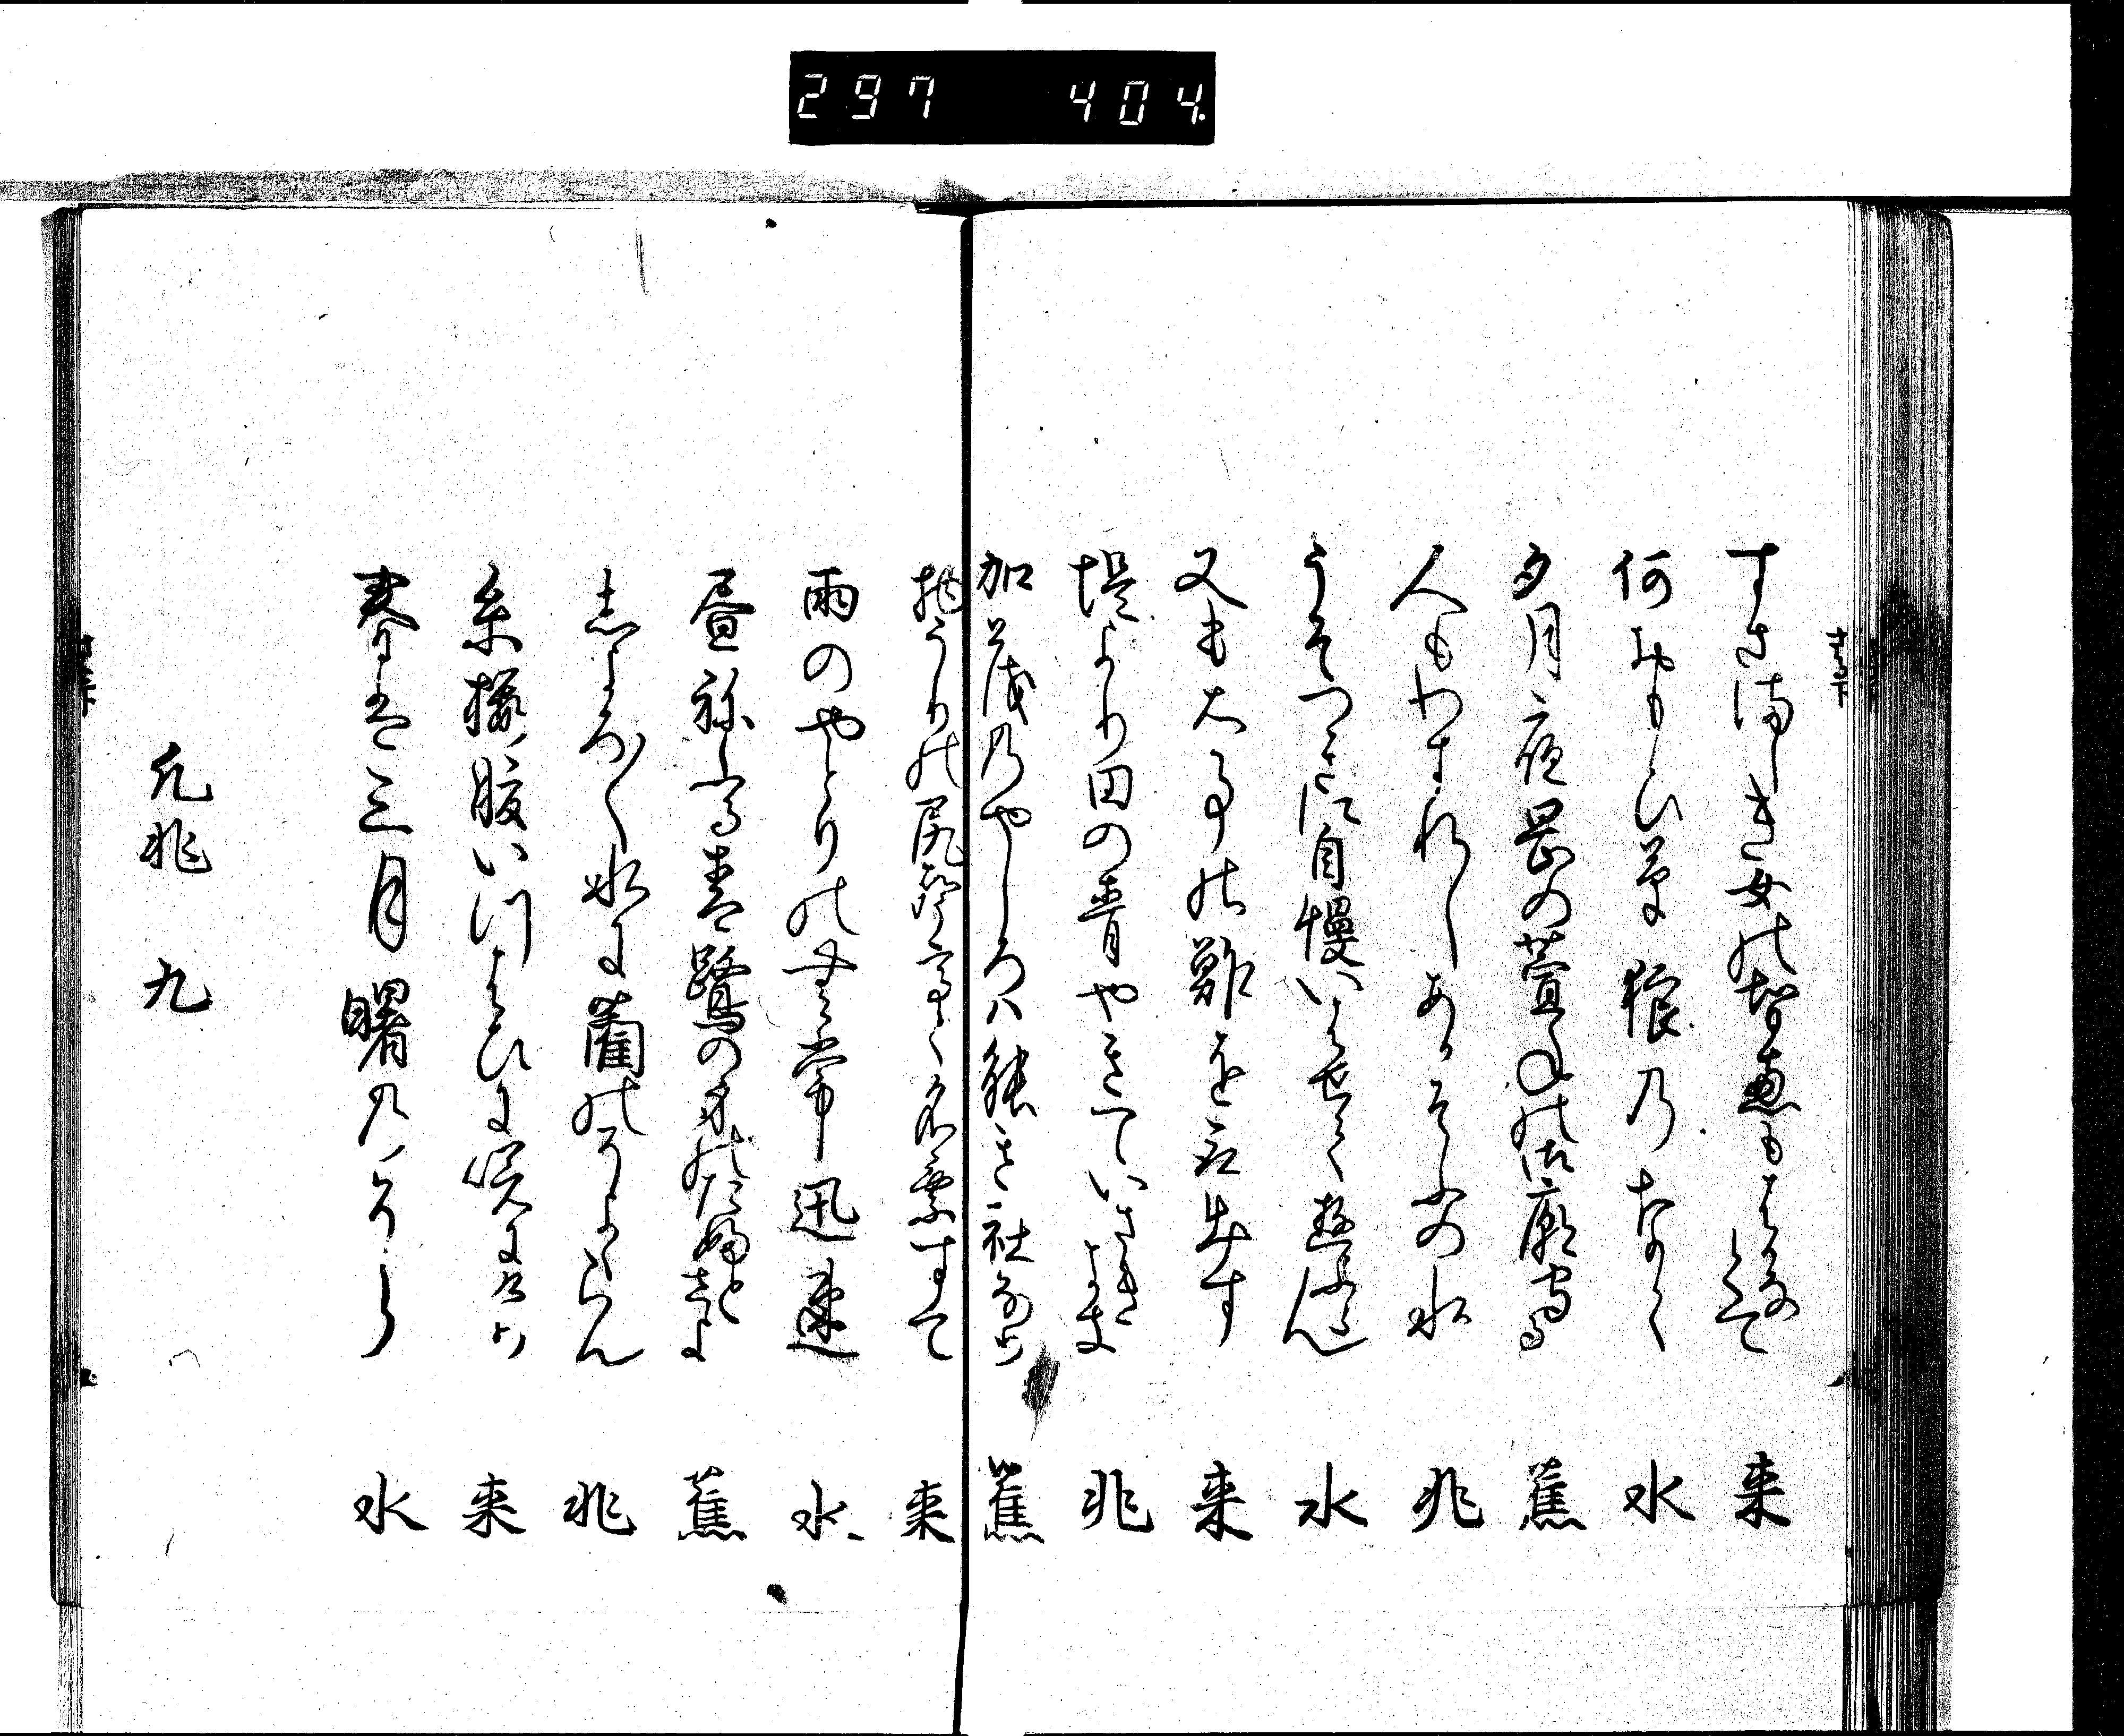 297 404
すさましき女の智恵もはかなくて 来
何おもひ草狼のなく 水
夕月夜岡の萱ねの御廟守る 蕉
人もわすれしあかそふの水 兆
うそつきに自慢いはせて遊ふらん 水
又も大事の鮓を取出す 来
堤より田の青やきていさきよき 兆
加茂のやしろハ能き社なり 蕉
物うりの尻声高く名乗すて 来
雨のやとりの無常迅速 水
昼ねふる青鷺の身のたふとさよ 蕉
しよろ〳〵水に藺のそよくらん 兆
糸桜腹いつはひに咲にけり 来
春は三月曙のそら 水
凡兆 九